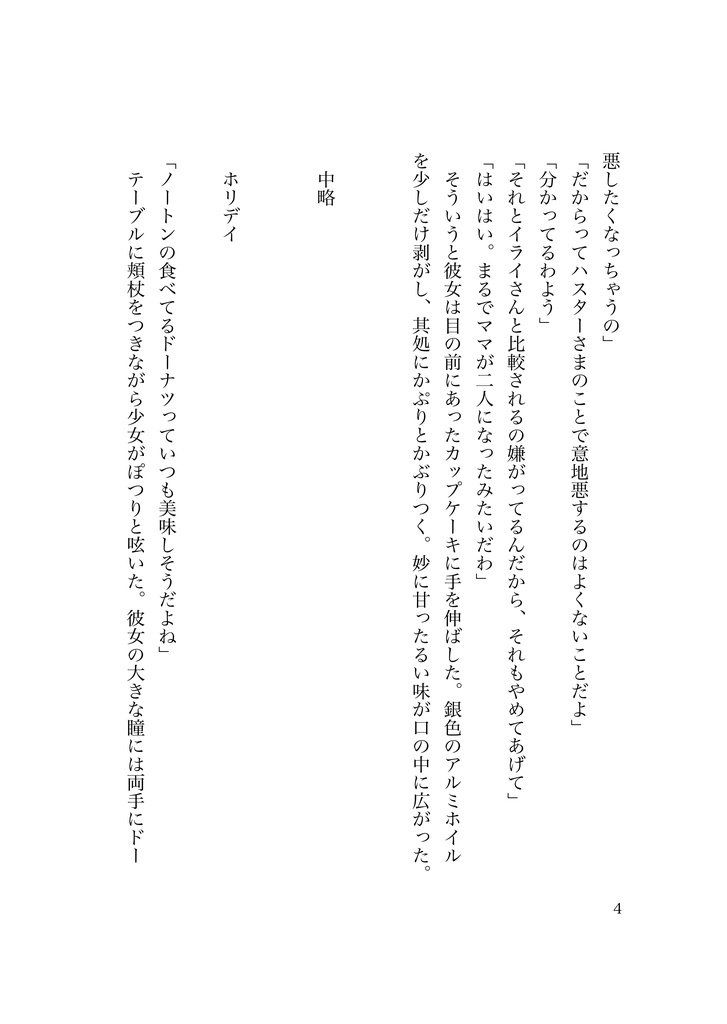 悪したくなっちゃうの」
「だからってハスターさまのことで意地悪するのはよくないことだよ」
「分かってるわよう」
「それとイライさんと比較されるの嫌がってるんだから、それもやめてあげて」
「はいはい。まるでママが二人になったみたいだわ」
　そういうと彼女は目の前にあったカップケーキに手を伸ばした。銀色のアルミホイル
を少しだけ剥がし、其処にかぷりとかぶりつく。妙に甘ったるい味が口の中に広がった。
中略
ホリデイ
「ノートンの食べてるドーナツっていつも美味しそうだよね」
　テーブルに頬杖をつきながら少女がぽつりと呟いた。彼女の大きな瞳には両手にドー
4